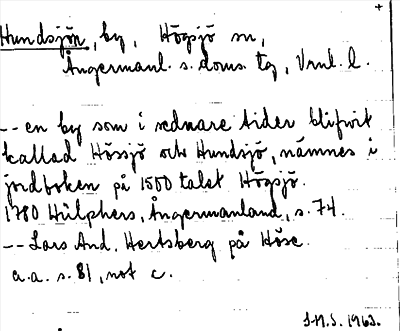 +
Hundsjön, by, Högsjö sn,
Ångermanl. s. doms. tg, Vnrl. l.
-- en by som i sednare tider blifvit
kallad Hössjö och Hundsjö, nämnes i
jordboken på 1500 talet Högsjö.
1780 Hülphers, Ångermanland, s. 74.
-- Lars And. Hertsberg på Höse
a.a. s. 81, not c.
J.M.S. 1963.